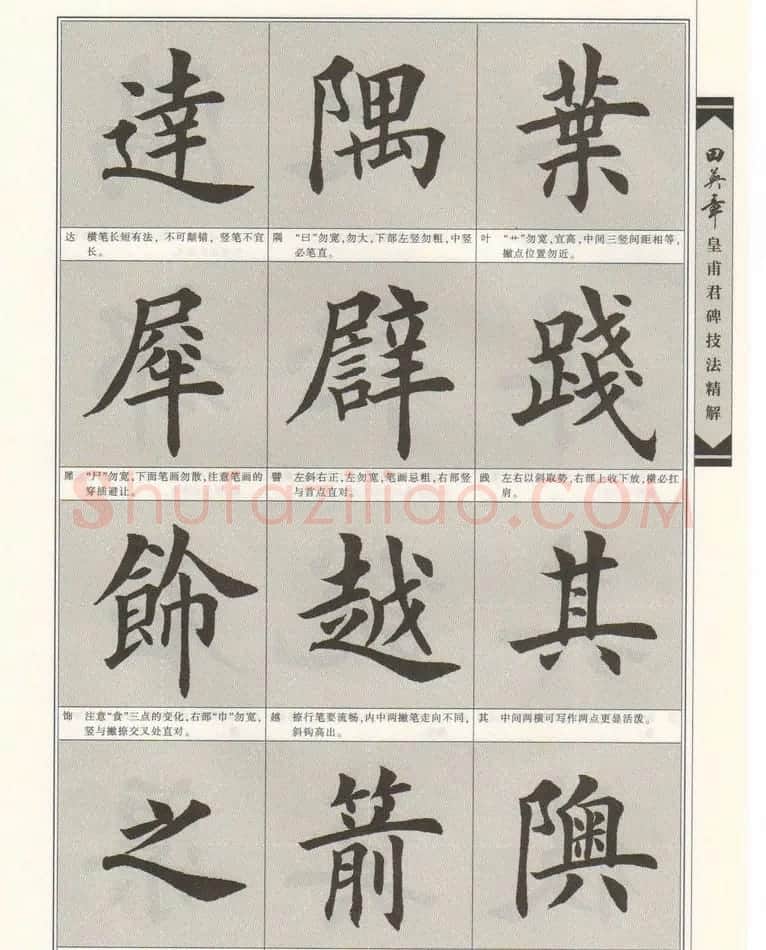 達 隅 葉
达 横笔长短有法，不可颠错，竖笔不宜
长。
隅 “曰”勿宽，勿大，下部左竖勿粗，中竖
必笔直。
叶 “艹”勿宽，宜高，中间三竖间距相等，
撇点位置勿近。
犀 譬 踐
犀 “尸”勿宽，下面笔画勿散，注意笔画的
穿插避让。
譬 左斜右正，左勿宽，笔画忌粗，右部竖
与首点直对。
践 左右以斜取势，右部上收下放，横必扛
肩。
shufaziliao.com
飾 越 其
饰 注意“食”三点的变化，右部“巾”勿宽，
竖与撇捺交叉处直对。
越 捺行笔要流畅，内中两撇笔走向不同，
斜钩高出。
其 中间两横可写作两点更显活泼。
之 箭 隩
田英章
皇甫君碑技法精解